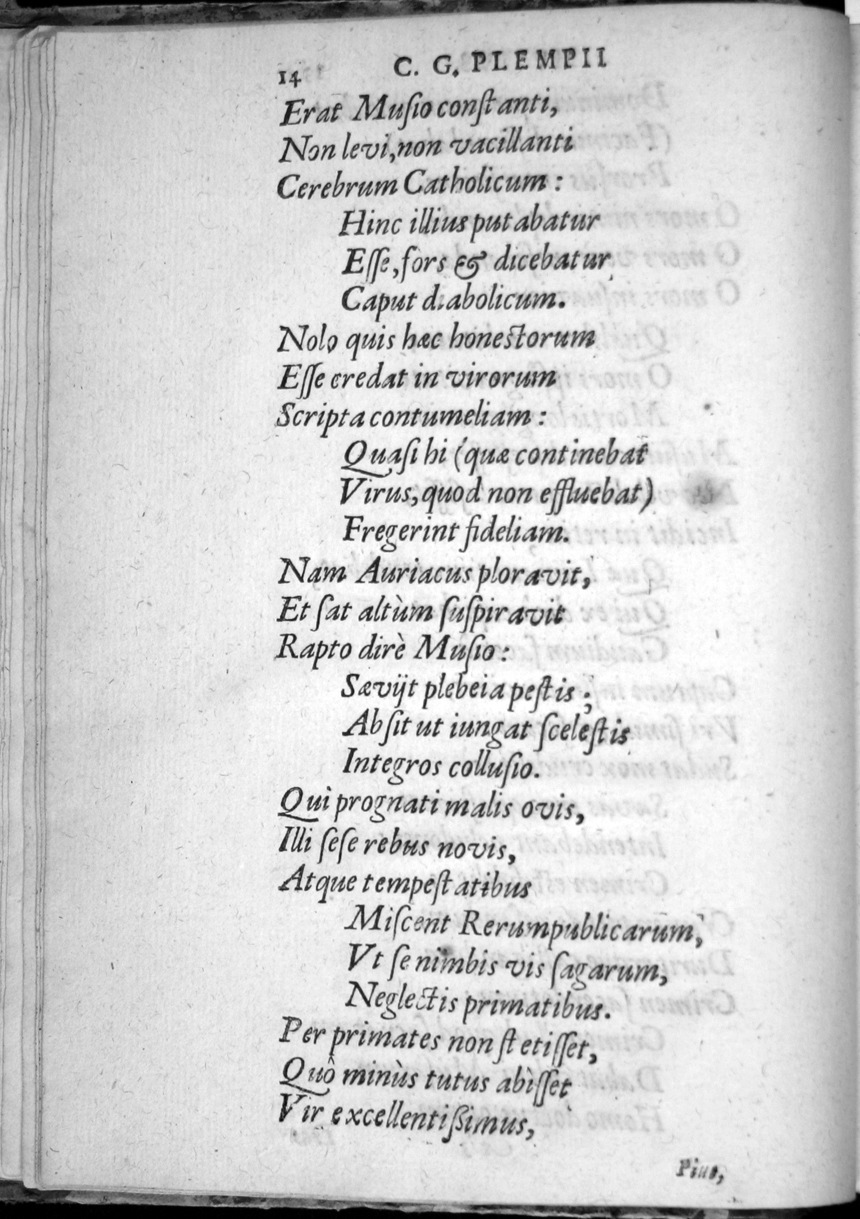 14 C. G. PLEMPII
Erat Muſio conſtanti,
Non levi, non vacillanti
Cerebrum Catholicum :
Hinc illius putabatur
Eſſe, fors & dicebatur
Caput diabolicum.
Nolo quis hæc honestorum
Eſſe credat in virorum
Scripta contumeliam :
Quaſi hi (quæ continebat
Virus, quod non effluebat)
Fregerint fideliam.
Nam Auriacus ploravit,
Et ſat altùm ſuſpiravit
Rapto dirè Muſio :
Sævijt plebeia peſtis ;
Abſit ut iungat ſceleſtis
Integros colluſio.
Qui prognati malis ovis,
Illi ſeſe rebus novis,
Atque tempeſtatibus
Miſcent Rerumpublicarum,
Vt ſe nimbis vis ſagarum,
Neglectis primatibus.
Per primates non ſtetiſſet,
Quò minùs tutus abiſſet
Vir excellentiſsimus,
Pius,